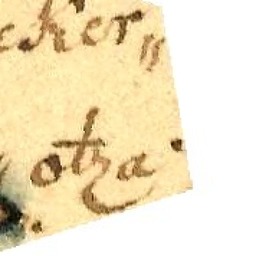 cker„
otza